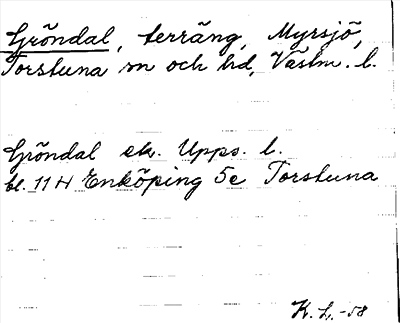 Gröndal, terräng, Myrsjö,
Torstuna sn och hd, Västm. l.
Gröndal ek. Upps. l.
bl. 11 H Enköping 5c Torstuna
K. L. -58